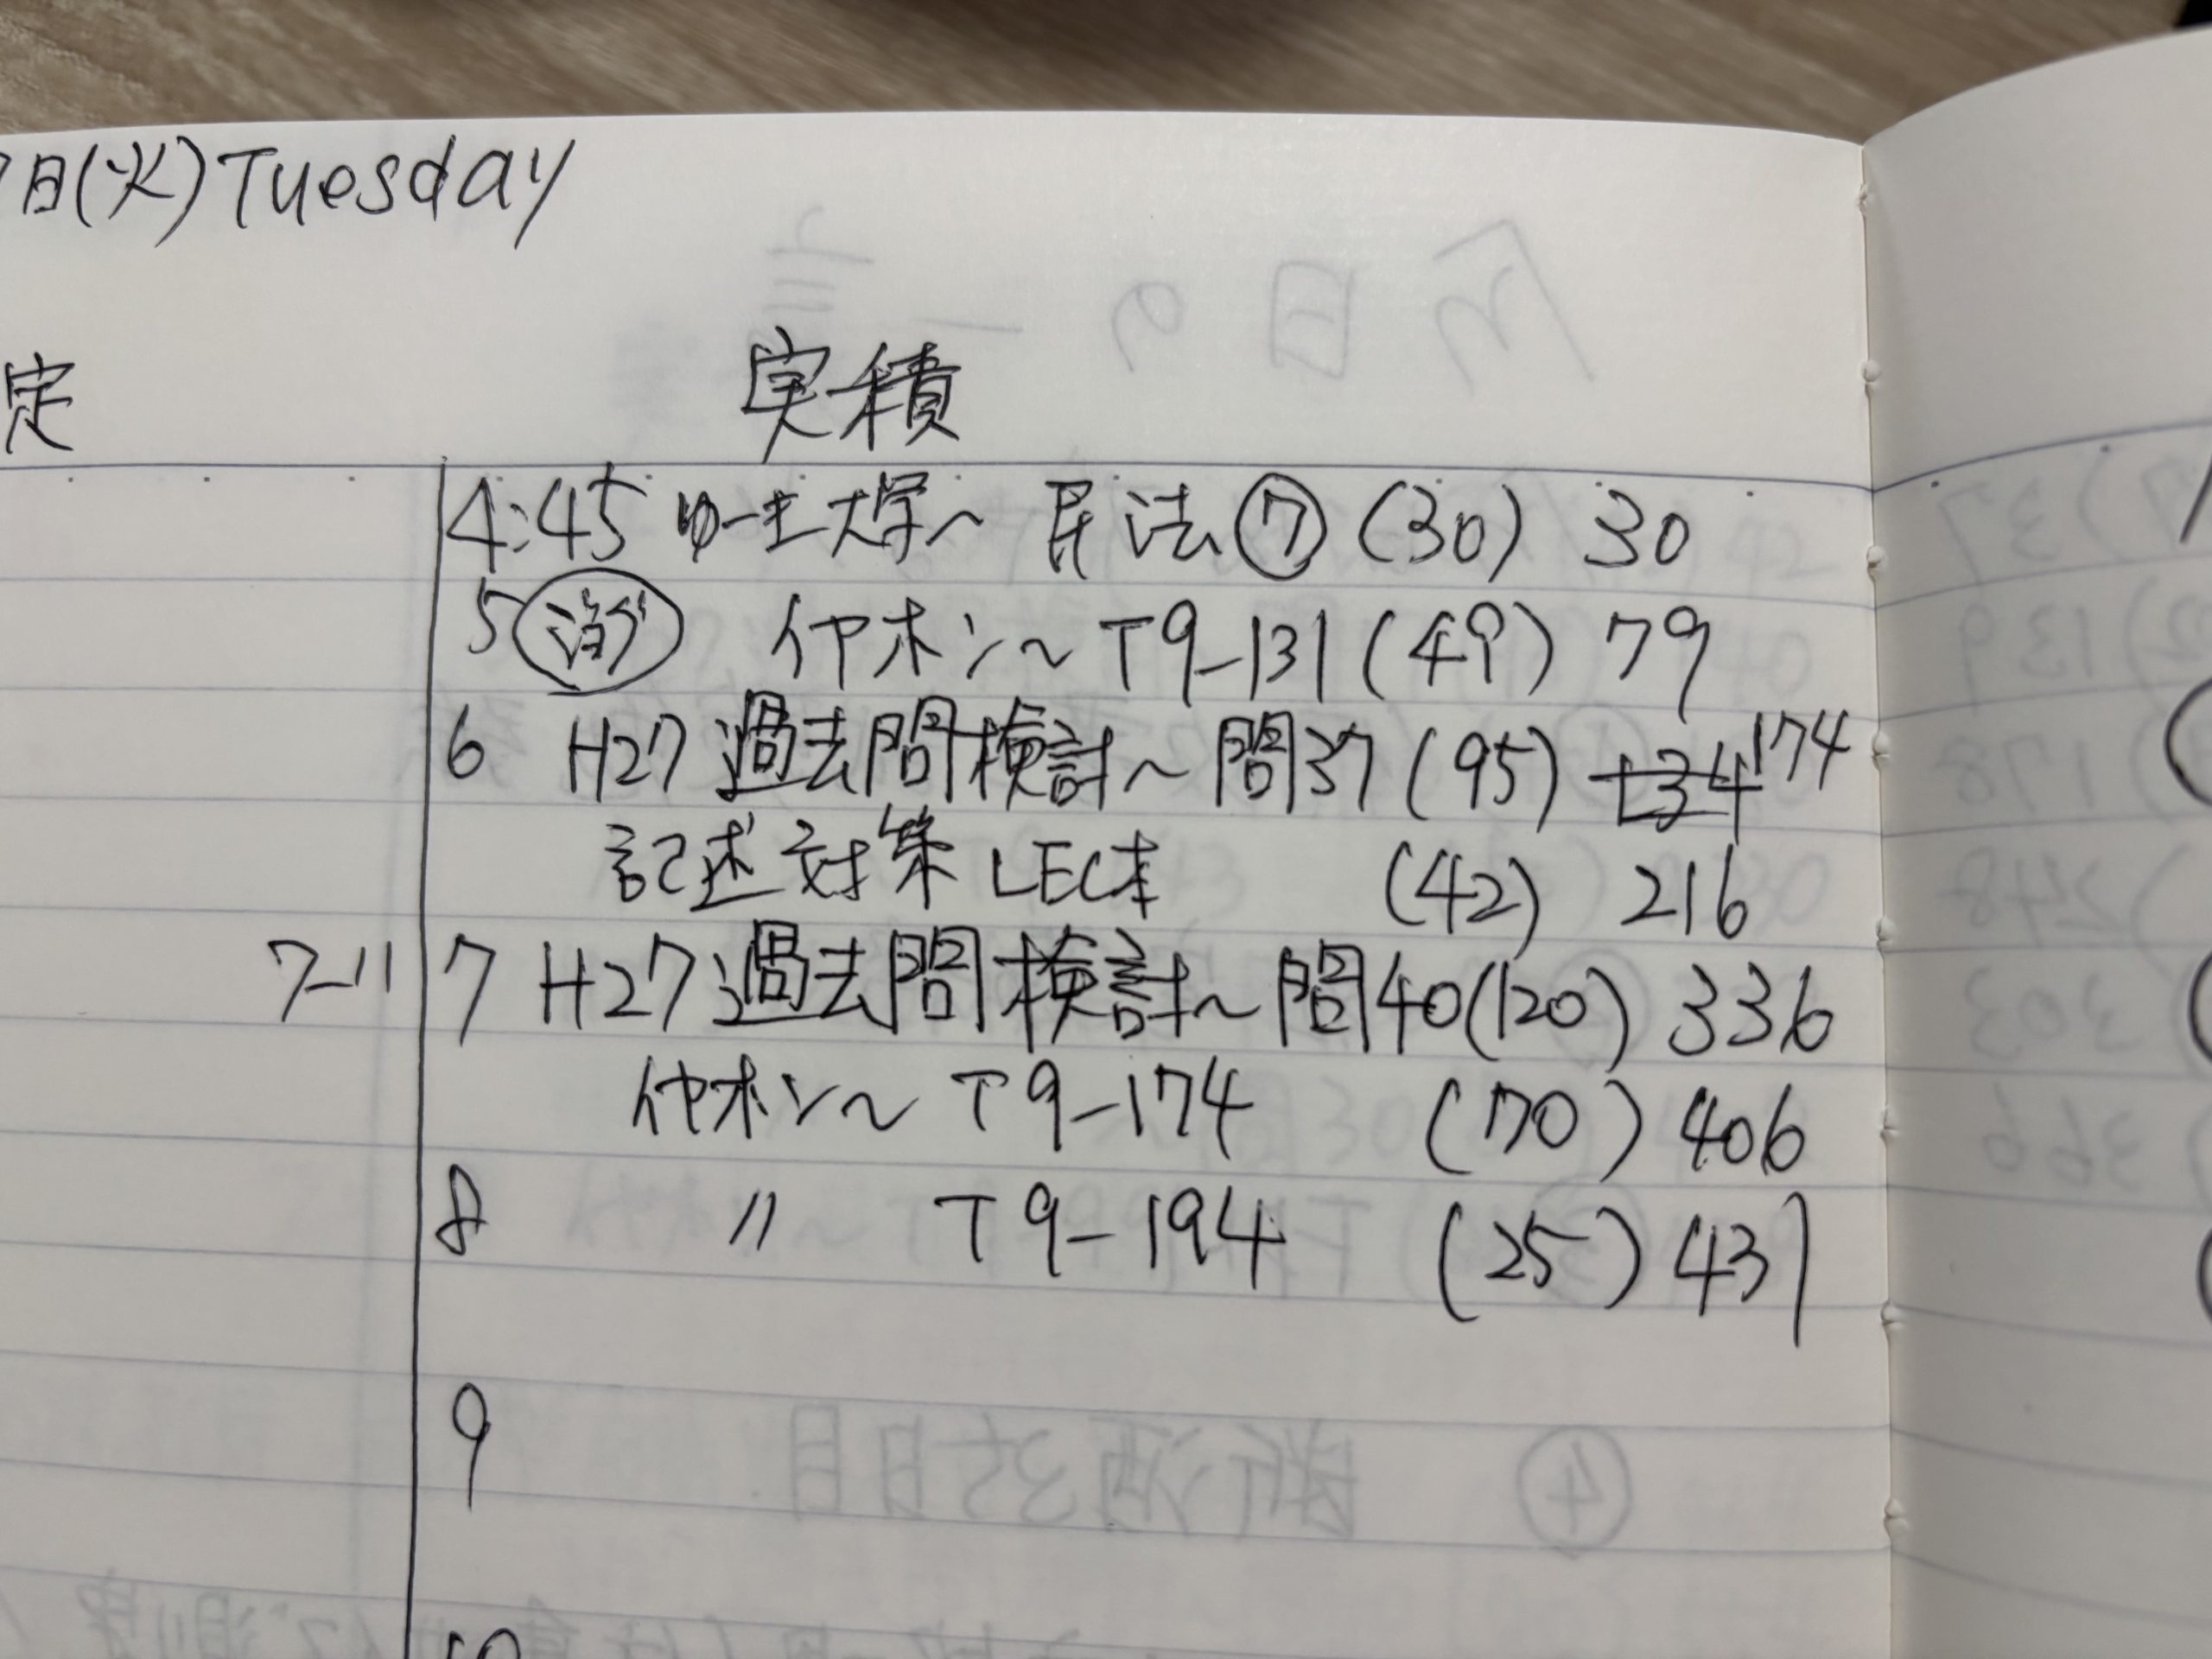 7日(火)Tuesday
定 実積
4:45 ゆーき大学〜 民法⑦ (30) 30
5 イヤホン〜T9-131 (49) 79
6 H27 過去問検討〜問37 (95) 134 174
記述対策 LEC本 (42) 216
7-11 7 H27過去問検討〜問40(120) 336
イヤホン〜T9-174 (70) 406
8 〃 T9-194 (25) 431
9
10